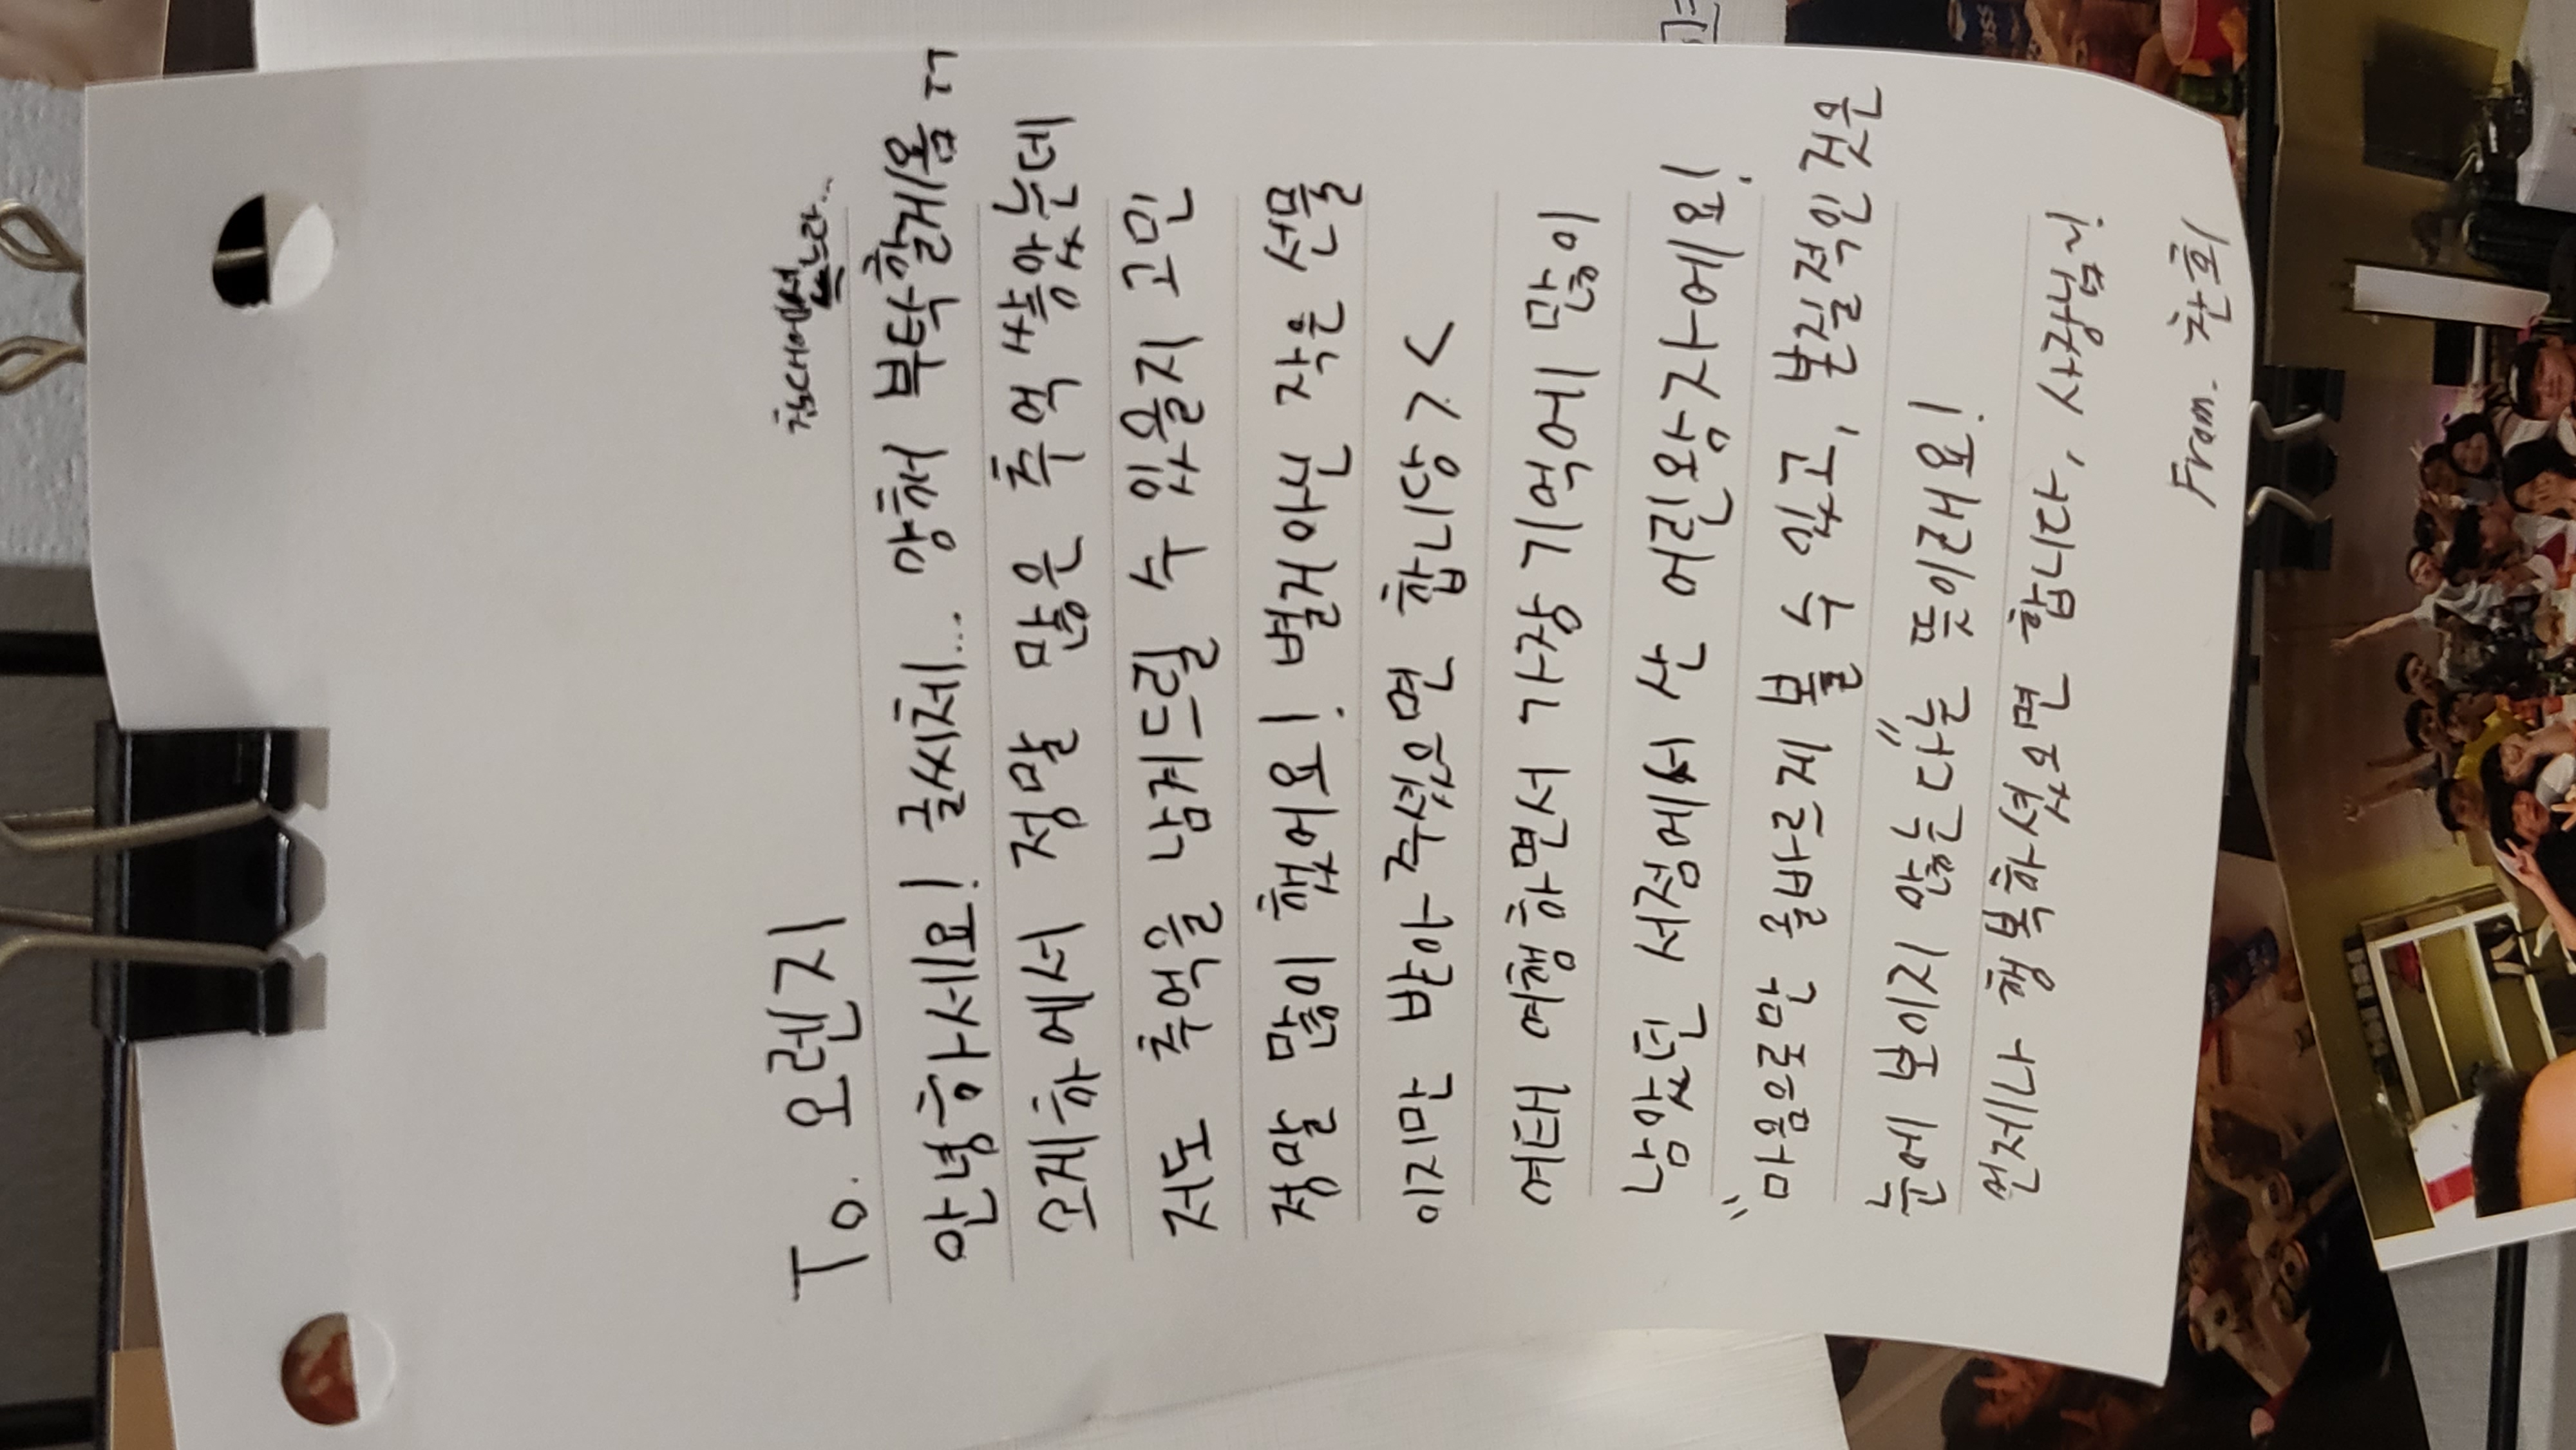 To. 오렌지
침대에서 쓰느라...
안녕하세요! 글씨체... 양해 부탁할게욤 ㅜㅜ
소제하에서 정말 많은 추억 쌓았는데
저도 추억을 남겨드릴 수 있을지 고민
정말 많이 했어요! 별거아닌 작은 선물
이지만 받아주셨으면 합니당 > <
여태 여행하면서 가장 기억에 많이
남았던 서점에서 산 어린왕자에요!
"마음으로만 올바르게 볼 수 있고, 본질적인 것은
눈에 보이지 않는다"는 뜻이래요!
언제나 행복하셨으면 합니다, 사장님~!
From. 찬희